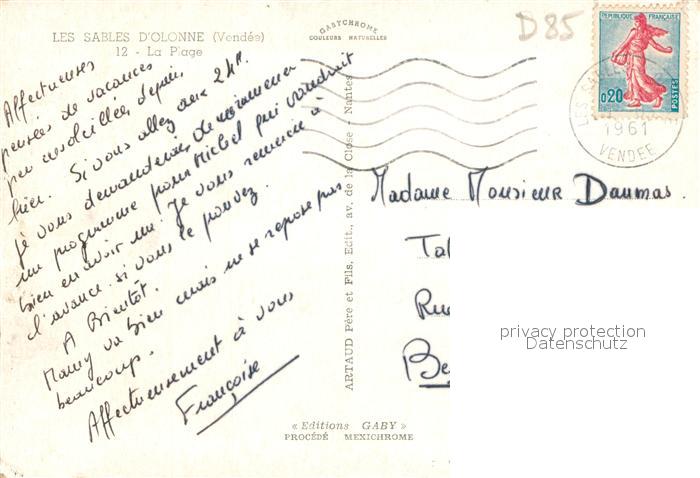 LES SABLES D'OLONNE (Vendée)
12 - La Plage
GASTYCHROME
COULEURS NATURELLES
D85
REPUBLIQUE FRANÇAISE
0,20
POSTES
LES SABLES
1961
VENDEE
Affectueuses
pensées de vacances
peu ensoleillées depuis
hier. Si vous allez aux 24 H.
je vous demanderai de m'emmener
un programme pour Michel qui voudrait
bien en avoir un. Je vous remercie à
l'avance si vous le pouvez.
A Bientôt.
Mamy va bien mais ne se repose pas
beaucoup.
Affectueusement à vous
Françoise
ARTAUD Père et Fils, Edit., av. de la Close - Nantes
Madame Monsieur Daumas
Ta
Rue
Be
privacy protection
Datenschutz
« Editions GABY »
PROCÉDÉ MEXICHROME